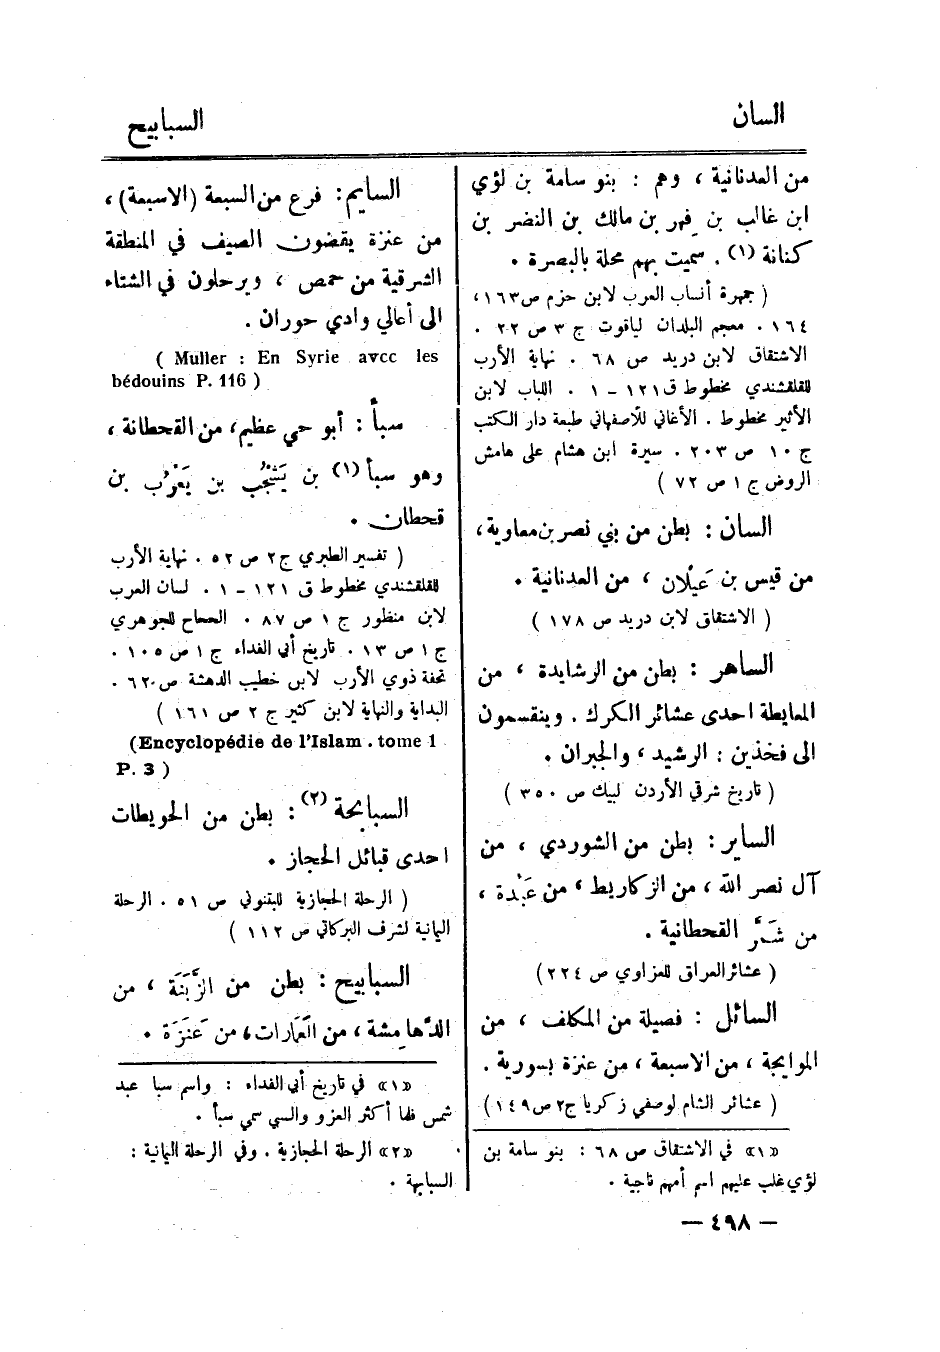 السان
السبابيح
من العدنانية ، وهم : بنو سامة بن لؤي
ابن غالب بن فهر بن مالك بن النضر بن
كنانة (١) . سميت بهم محلة بالبصرة .
( جمهرة أنساب العرب لابن حزم ص١٦٣،
١٦٤ . معجم البلدان لياقوت ج ٣ ص ٢٢ .
الاشتقاق لابن دريد ص ٦٨ . نهاية الأرب
للقلقشندي مخطوط ق ١٢١ - ١ . اللباب لابن
الأثير مخطوط . الأغاني للأصفهاني طبعة دار الكتب
ج ١٠ ص ٢٠٣ . سيرة ابن هشام على هامش
الروض ج ١ ص ٧٢ )
السان : بطن من بني نصر بن معاوية،
من قيس بن عَيلان ، من العدنانية .
( الاشتقاق لابن دريد ص ١٧٨ )
الساهر : بطن من الرشايدة ، من
المعايطة احدى عشائر الكرك . وينقسمون
الى فخذين : الرشيد ، والجبران .
( تاريخ شرقي الأردن لبيك ص ٣٥٠ )
الساير : بطن من الشوردي ، من
آل نصر الله ، من الزكاريط ، من عَبْدة ،
من شَمَّر القحطانية .
( عشائر العراق للعزاوي ص ٢٢٤)
السائل : فصيلة من المكلف ، من
الموايجة ، من الاسبعة ، من عنزة بسورية .
( عشائر الشام لوصفي زكريا ج٢ ص١٤٩)
«١» في الاشتقاق ص ٦٨ : بنو سامة بن
لؤي غلب عليهم اسم أمهم ناجية .
السايم : فرع من السبعة (الاسبعة) ،
من عنزة يقضون الصيف في المنطقة
الشرقية من حمص ، ويرحلون في الشتاء
الى أعالي وادي حوران .
( Muller : En Syrie avec les
bédouins P. 116 )
سبأ : أبو حي عظيم، من القحطانة ،
وهو سبأ (١) بن يَشْجُب بن يَعْرُب بن
قحطان .
( تفسير الطبري ج٢ ص ٥٢ . نهاية الأرب
للقلقشندي مخطوط ق ١٢١ - ١ . لسان العرب
لابن منظور ج ١ ص ٨٧ . الصحاح للجوهري
ج ١ ص ١٣ . تاريخ أبي الفداء ج ١ ص ١٠٥ .
تحفة ذوي الأرب لابن خطيب الدهشة ص ٦٢ .
البداية والنهاية لابن كثير ج ٢ ص ١٦١ )
(Encyclopédie de l'Islam . tome 1
P. 3 )
السبابحة (٢) : بطن من الحويطات
احدى قبائل الحجاز .
( الرحلة الحجازية للبتنوني ص ٥١ . الرحلة
اليمانية لشرف البركاتي ص ١١٢ )
السبابيح : بطن من الزَّبَنَة ، من
الدَّهامِشة ، من العَمارات ، من عَنَزَة .
«١» في تاريخ أبي الفداء : واسم سبا عبد
شمس فلما أكثر الغزو والسبي سمي سبأ .
«٢» الرحلة الحجازية . وفي الرحلة اليمانية :
السبابهة .
— ٤٩٨ —